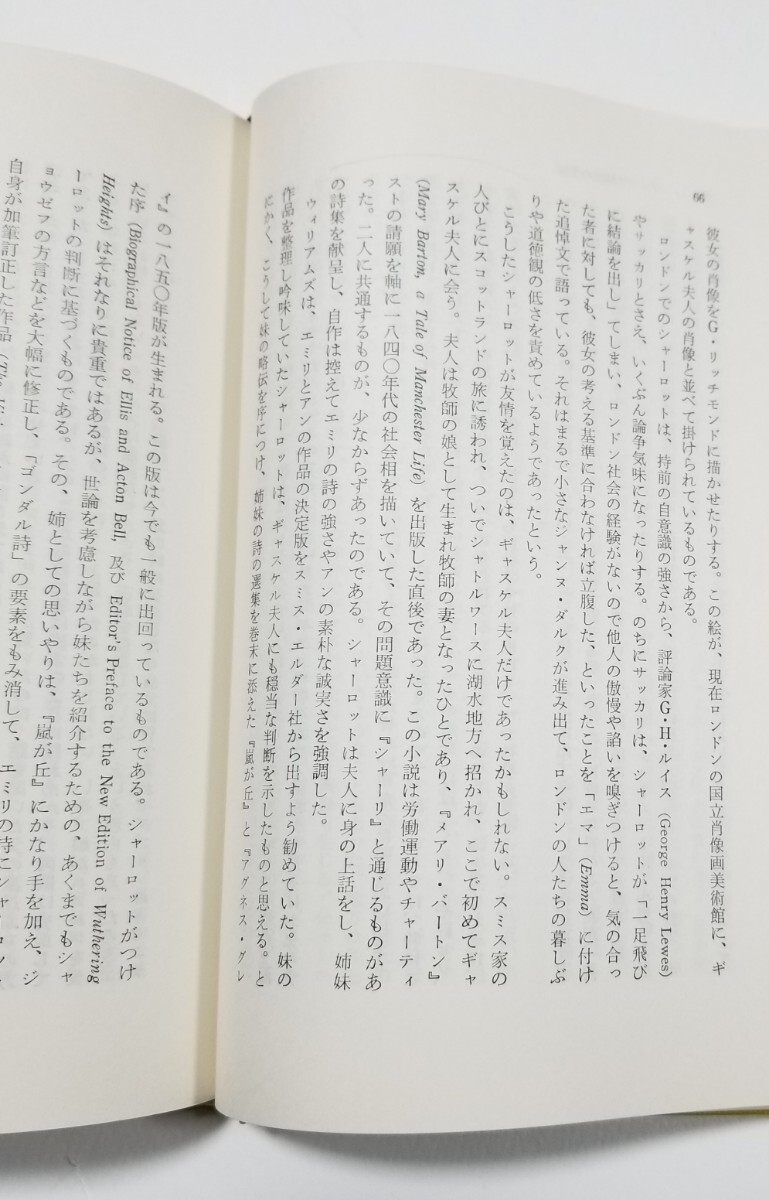 66
彼女の肖像をG・リッチモンドに描かせたりする。この絵が、現在ロンドンの国立肖像画美術館に、ギ
ャスケル夫人の肖像と並べて掛けられているものである。
ロンドンでのシャーロットは、持前の自意識の強さから、評論家G・H・ルイス (George Henry Lewes)
やリッカリとさえ、いくぶん論争気味になったりする。のちにサッカリは、シャーロットが「一足飛び
に結論を出し」てしまい、ロンドン社会の経験がないので他人の傲慢や諂いを嗅ぎつけると、気の合っ
た者に対しても、彼女の考える基準に合わなければ立腹した、といったことを「エマ」(Emma) に付け
た追悼文で語っている。それはまるで小さなジャンヌ・ダルクが進み出て、ロンドンの人たちの暮しぶ
りや道徳観の低さを責めているようであったという。
こうしたシャーロットが友情を覚えたのは、ギャスケル夫人だけであったかもしれない。スミス家の
人びとにスコットランドの旅に誘われ、ついでシャトルワースに湖水地方へ招かれ、ここで初めてギャ
スケル夫人に会う。夫人は牧師の娘として生まれ牧師の妻となったひとであり、『メアリ・バートン』
(Mary Barton, a Tale of Manchester Life) を出版した直後であった。この小説は労働運動やチャーティ
ストの請願を軸に一八四〇年代の社会相を描いていて、その問題意識に『シャーリ』と通じるものがあ
った。二人に共通するものが、少なからずあったのである。シャーロットは夫人に身の上話をし、姉妹
の詩集を献呈し、自作は控えてエミリの詩の強さやアンの素朴な誠実さを強調した。
ウィリアムズは、エミリとアンの作品の決定版をスミス・エルダー社から出すよう勧めていた。妹の
作品を整理し吟味していたシャーロットは、ギャスケル夫人にも穏当な判断を示したものと思える。と
にかく、こうして妹の略伝を序につけ、姉妹の詩の選集を巻末に添えた『嵐が丘』と『アグネス・グレ
イ』の一八五〇年版が生まれる。この版は今でも一般に出回っているものである。シャーロットがつけ
た序 (Biographical Notice of Ellis and Acton Bell, 及び Editor's Preface to the New Edition of Wuthering
Heights) はそれなりに貴重ではあるが、世論を考慮しながら妹たちを紹介するための、あくまでもシャ
ーロットの判断に基づくものである。その、姉としての思いやりは、『嵐が丘』にかなり手を加え、ジ
ョウゼフの方言などを大幅に修正し、「ゴンダル詩」の要素をもみ消して、エミリの詩にシャーロッ
自身が加筆訂正した作品